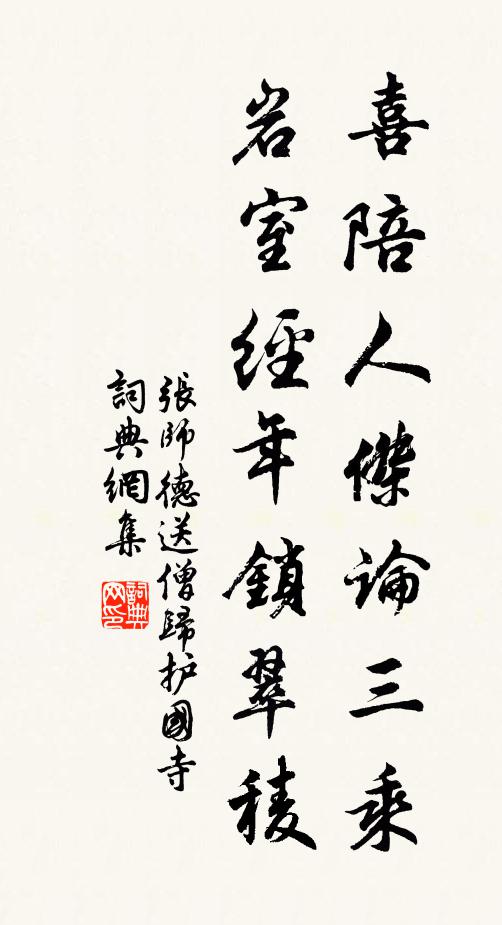 喜陪人傑論三乘
岩室經年鎖翠稜
張師德送僧歸护國寺
詞典網集
詞典网印